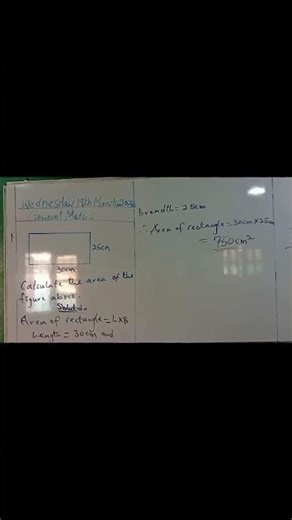 Wednesday 18th March, 202
General Math:
25cm
30cm
Calculate the area of the
figure above.
Solution
Area of rectangle = L×B
Length = 30cm and
Breadth = 25cm
∴ Area of rectangle = 30cm × 25cm
= 750cm²